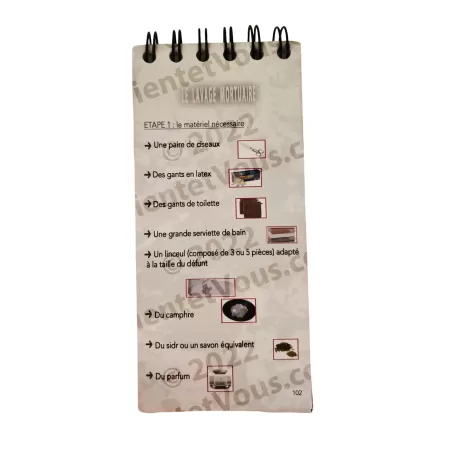 LE LAVAGE MORTUAIRE
ETAPE 1 : le matériel nécessaire
→ Une paire de ciseaux
→ Des gants en latex
→ Des gants de toilette
→ Une grande serviette de bain
→ Un linceul (composé de 3 ou 5 pièces) adapté
à la taille du défunt
→ Du camphre
→ Du sidr ou un savon équivalent
→ Du parfum
102
ientetVous.co
© 2022
ientetVous.co
© 2022
ientetVous.co
© 2022
ientetVous.co